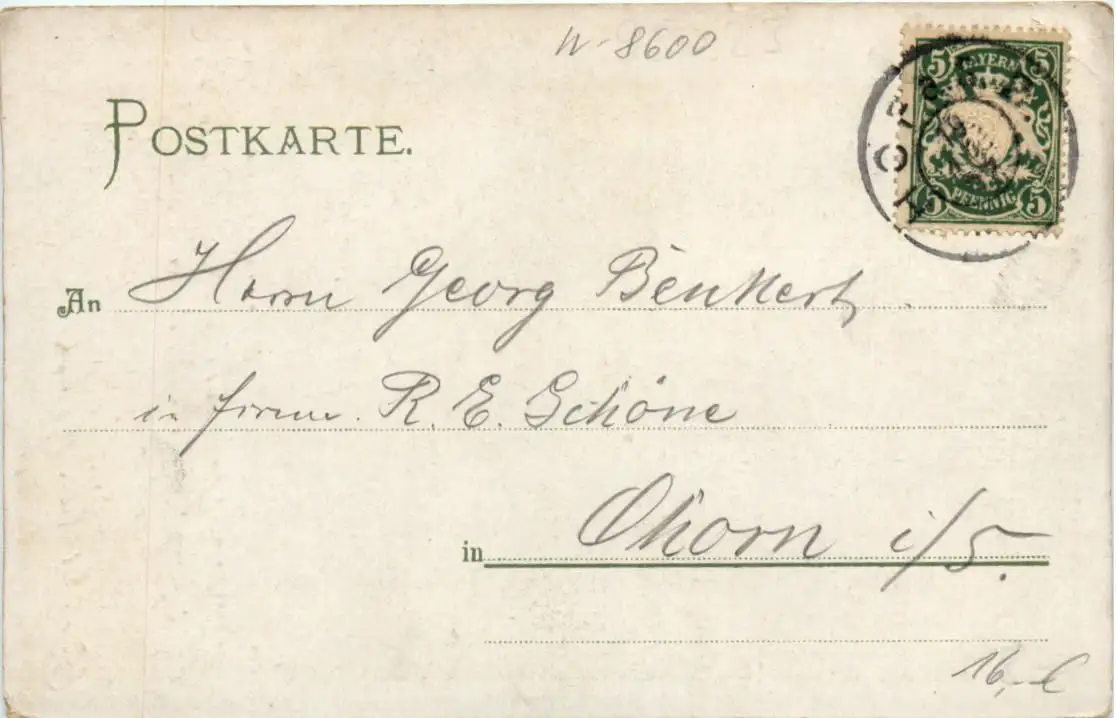 W-8600
5 BAYERN 5
5 PFENNIG 5
POSTKARTE.
An Herrn Georg Benkert
in firma R. E. Schöne
in Ohorn i/S.
16,-€